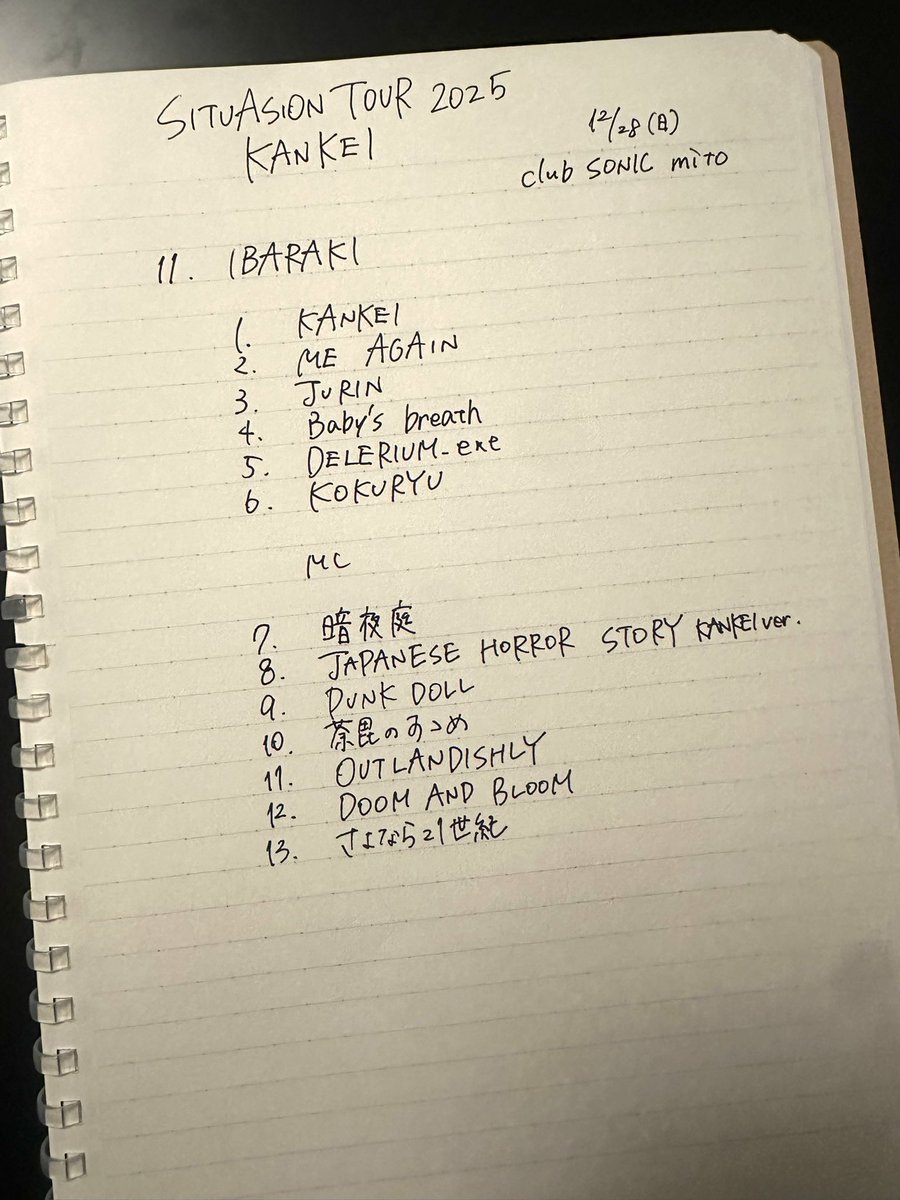 SITUASION TOUR 2025
KANKEI
12/28(日)
club SONIC mito
11. IBARAKI
1. KANKEI
2. ME AGAIN
3. JURIN
4. Baby's breath
5. DELERIUM-exe
6. KOKURYU
MC
7. 暗夜庭
8. JAPANESE HORROR STORY KANKEI ver.
9. PUNK DOLL
10.荼毘のすゝめ
11. OUTLANDISHLY
12. DOOM AND BLOOM
13. さよなら21世紀